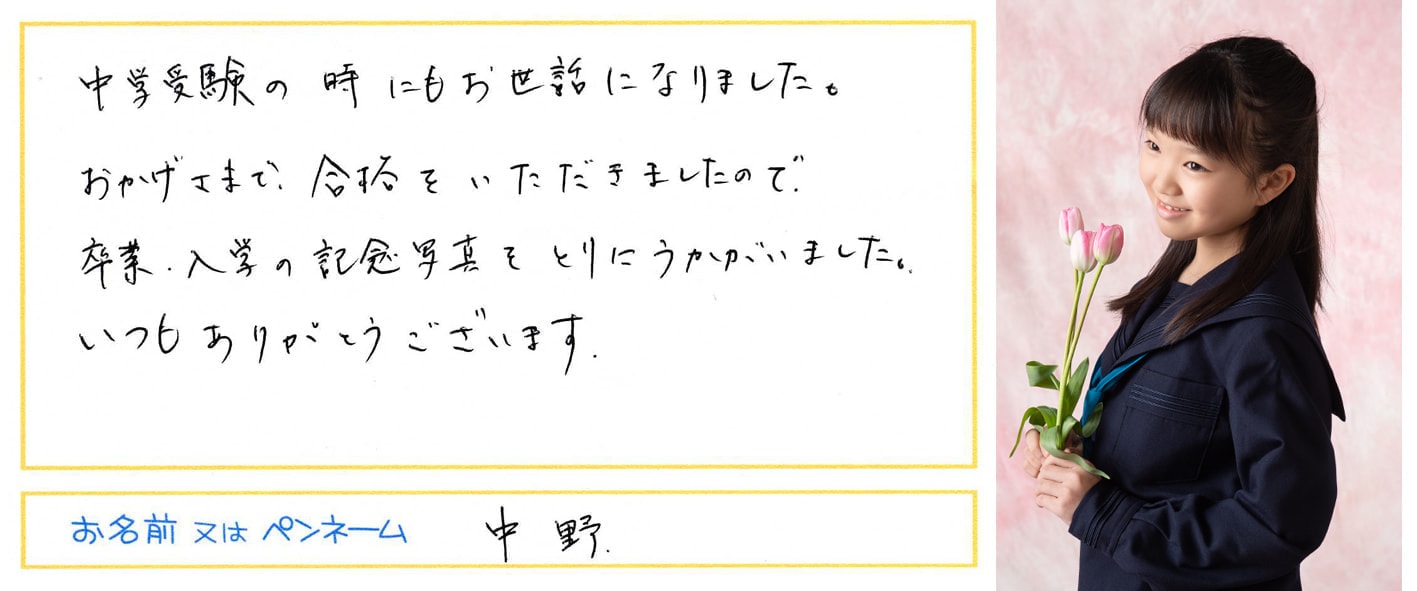 中学受験の時にもお世話になりました。
おかげさまで、合格をいただきましたので、
卒業・入学の記念写真をとりにうかがいました。
いつもありがとうございます.
お名前 又は ペンネーム 中野.